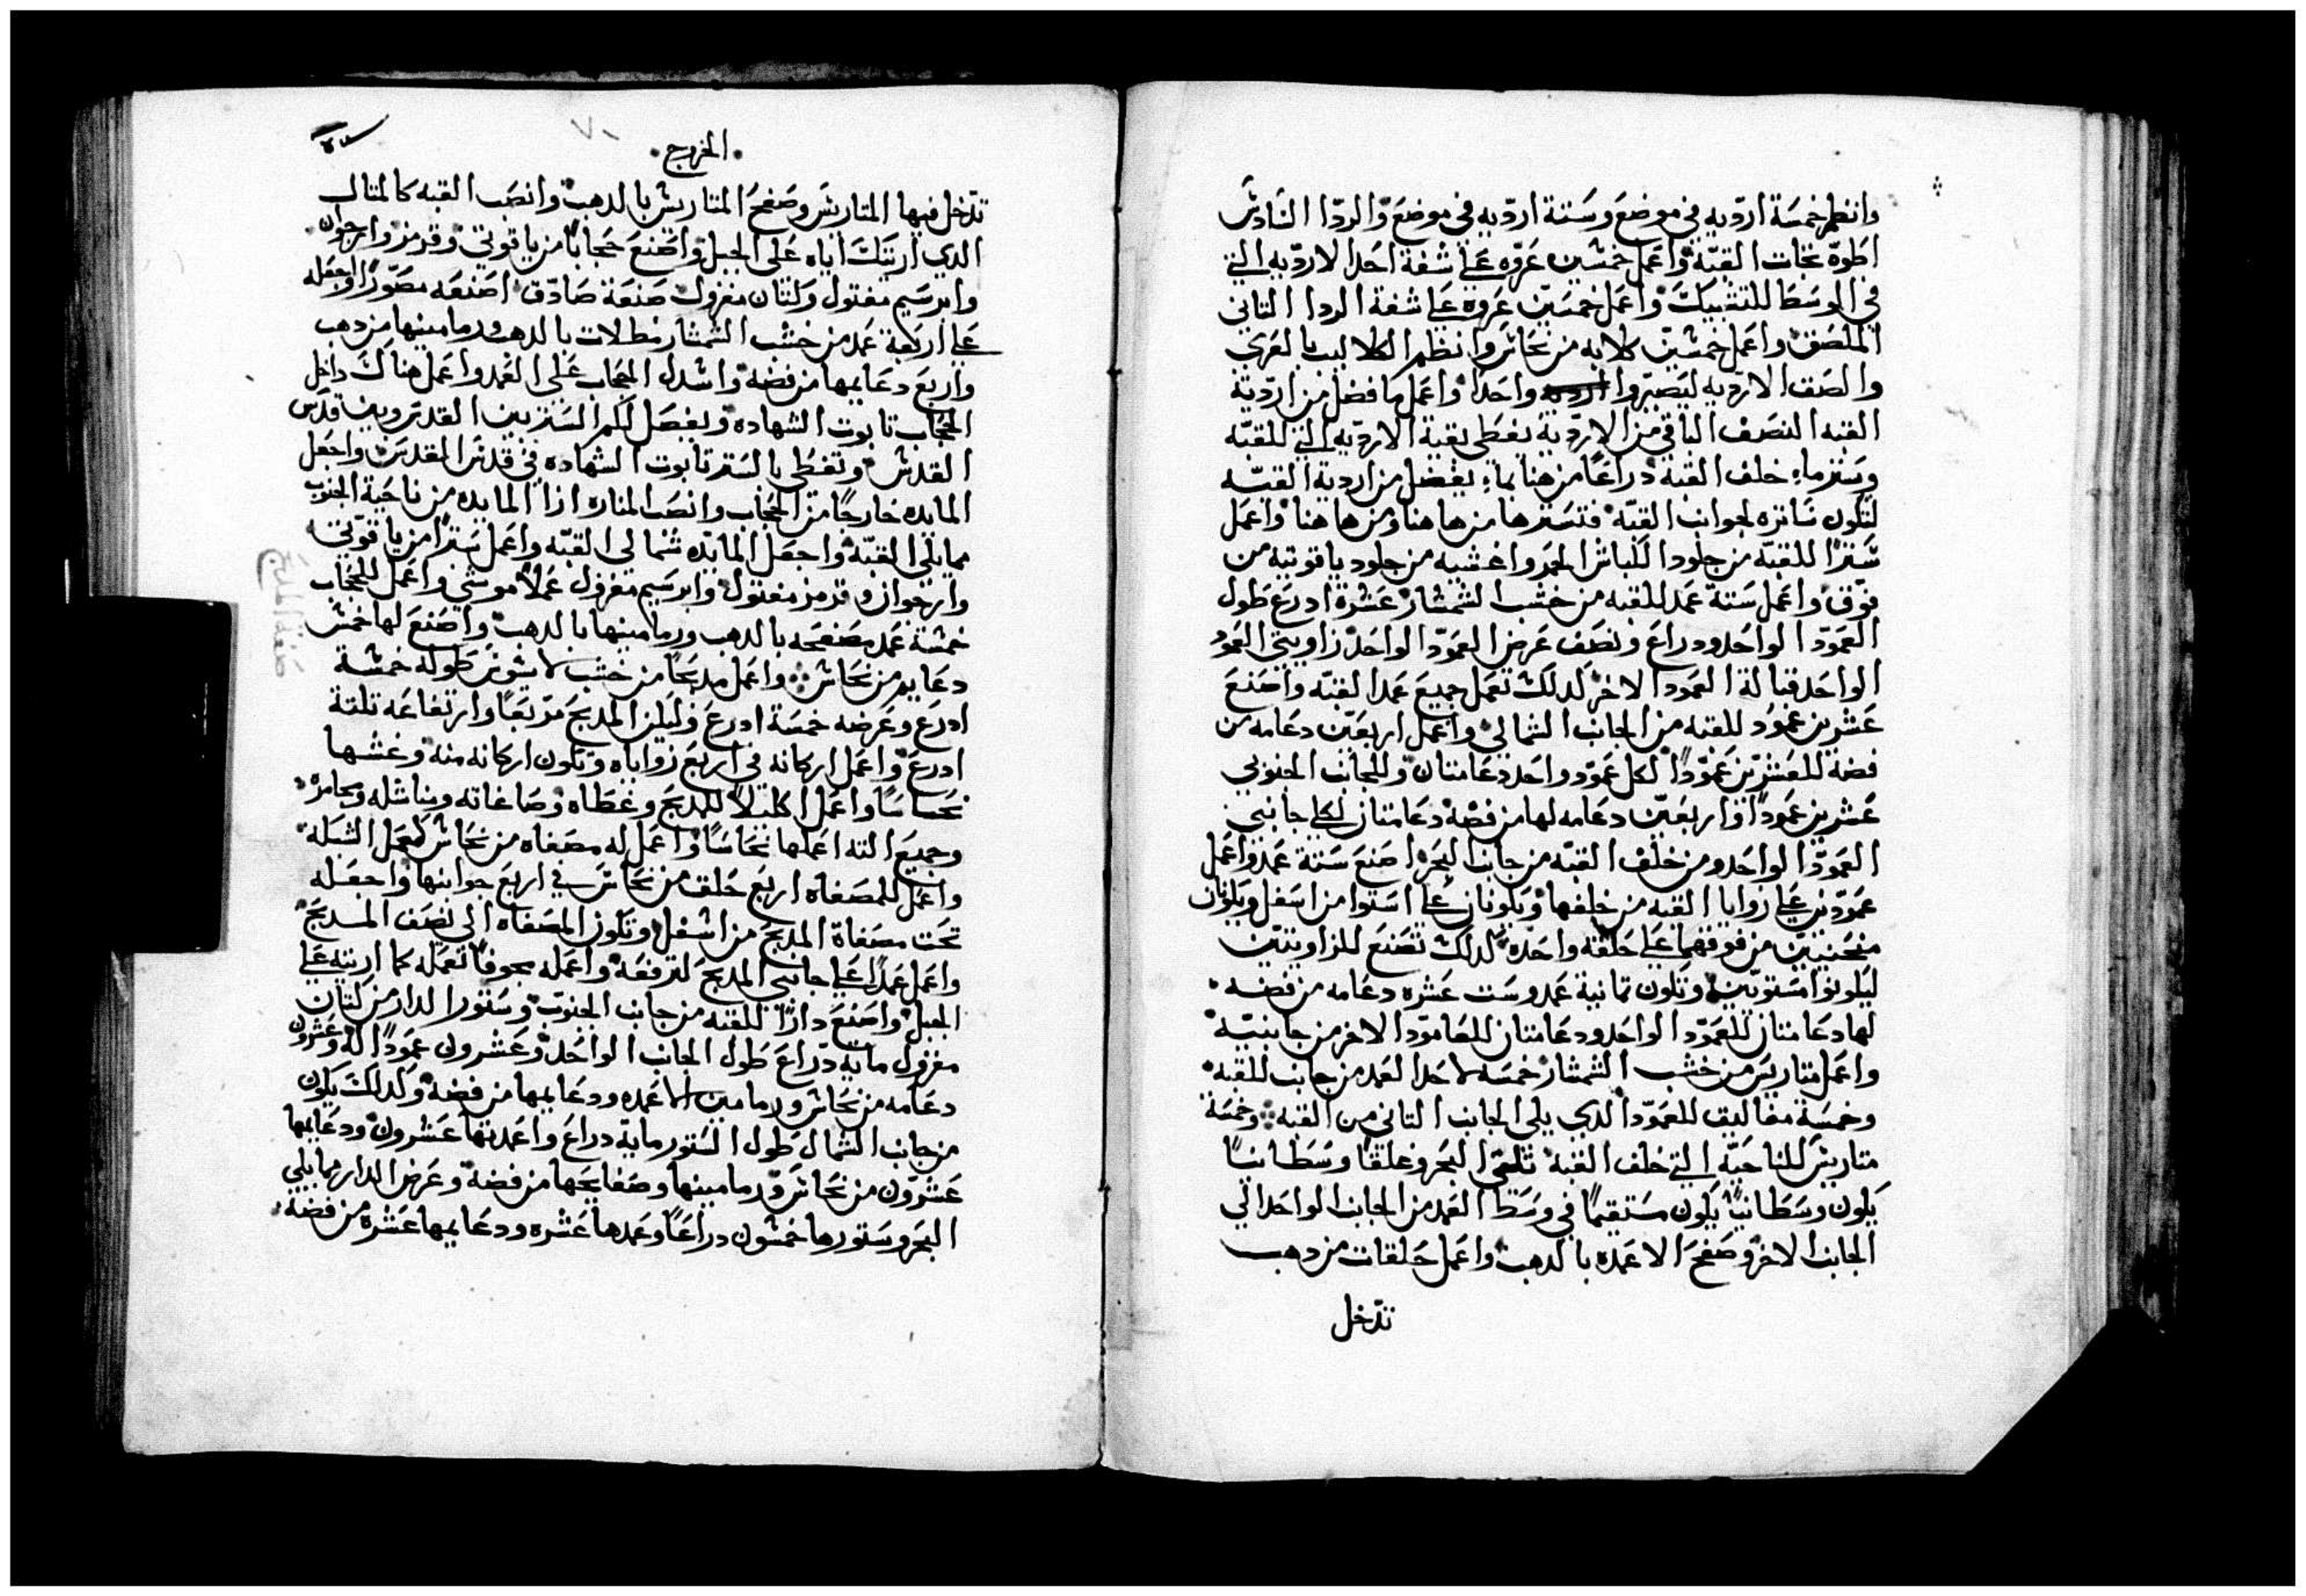 وانظم خمسة ارديه في موضع وستة ارديه في موضع والردا السادس
اطوه تجات القبه واعمل خمسين عروه على شفة احد الارديه التي
في الوسط للتشبيك واعمل خمسين عروه على شفة الردا الثاني
الملصق واعمل خمسين كلابه من نحاس وانظم الكلاليب بالعرى
والصق الارديه ليصيروا واحدا واعمل ما فضل من اردية
القبه النصف الباقي من الارديه يغطى بقية الارديه التي للقبه
وستر ماء خلف القبه دراعا من هنا بما يفضل من اردية القبه
لتكون ساتره لجوانب القبه فتسترها من هاهنا ومن هاهنا واعمل
سترا للقبه من جلود الكباش المحمر واغشيه من جلود ياقوتيه من
فوق واعمل ستة عمد للقبه من خشب الشمشار عشرة ادرع طول
العمود الواحد ودراع ونصف عرض العمود الواحد زاويتي العمود
الواحد قبالة العمود الاخر لدلك تعمل جميع عمد القبه واصنع
عشرين عمود للقبه من الجانب الشمالي واعمل اربعين دعامه من
فضة للعشرين عمودا لكل عمود واحد دعامتان وللجانب الجنوبي
عشرين عمودا واربعين دعامه لها من فضه دعامتان لكل جانبي
العمود الواحد ومن خلف القبه من جانب البحر اصنع ستة عمد واعمل
عمودين على زوايا القبه من خلفها ويكونان على استوا من اسفل ويكونان
منحنيين من فوقهما على حلقه واحده كدلك تصنع للزاويتين
ليكونوا مستويين وتكون تمانية عمد وست عشره دعامه من فضه
لها دعامتان للعمود الواحد ودعامتان للعامود الاخر من جانبيه
واعمل متاريس من خشب الشمشار خمسه لاحد العمد من جانب للقبه
وخمسة مغاليق للعمود الدي يلي الجانب التاني من القبه وخمسة
متاريس للناحيه التي خلف القبه تلقى البحر وغلقا وسطانيا
يكون وسطانيا يكون مستقيما في وسط العمد من الجانب الواحد الي
الجانب الاخر وصفح الاعمده بالدهب واعمل حلقات من دهب
تدخل
الخروج
٧٠
تدخل فيها المتاريس وصفح المتاريس بالدهب وانصب القبه كالمتال
الدي اريتك اياه على الجبل واصنع حجابا من ياقوتي وقرمز وارجوان
وابرسيم مفتول وكتان مغزول صنعة صادق اصنعه مصورا واجعله
على اربعة عمد من خشب الشمشار مطلات بالدهب ورمامينها من دهب
واربع دعايمها من فضه واسدل الحجاب على العمد واعمل هناك داخل
الحجاب تابوت الشهاده ويفصل لكم الستر بين القدس وبين قدس
القدس وتغطى بالستر تابوت الشهاده في قدس المقدس واجعل
المايده خارجا من الحجاب وانصب المناره ازا المايده من ناحية الجنوب
مما يلي القبه واجعل المايده شمالي القبه واعمل سترا من ياقوتي
وارجوان وقرمز مفتول وابرسيم مغزول عملا موشي واعمل للحجاب
خمسة عمد مصفحه بالدهب ورمامينها بالدهب واصنع لها خمس
دعايم من نحاس واعمل مدبحا من خشب لاسوتر طوله خمسة
ادرع وعرضه خمسة ادرع وليكن المدبح مربعا وارتفاعه تلتة
ادرع واعمل اركانه في اربع زواياه وتكون اركانه منه وغشها
نحاسا واعمل اكليلا للمدبح وغطاه وصاغاته ومناشله ومجامره
وجميع الته اعملها نحاسا واعمل له مصفاه من نحاس كعمل الشبكه
واعمل للمصفاه اربع حلق من نحاس في اربع جوانبها واجعله
تحت مصفاة المدبح من اسفل وتكون المصفاه الى نصف المدبح
واعمل عمدا على جانبي المدبح لترفعه واعمله مجوفا تعمله كما اريته على
الجبل واصنع دارا للقبه من جانب الجنوب وستور الدار من كتان
مغزول مايه دراع طول الجانب الواحد وعشرون عمودا له وعشرون
دعامه من نحاس ورمامين الاعمده ودعايمها من فضه وكدلك يكون
من جانب الشمال طول الستور مايه دراع واعمدتها عشرون ودعايمها
عشرون من نحاس ورمامينها وصفايحها من فضه وعرض الدار مما يلي
البحر وستورها خمسون دراعا وعمدها عشره ودعايمها عشره من فضه
صفة المدبح